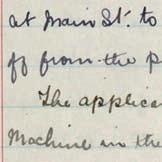 at Main St. to
from the p
The applica
Machine in the